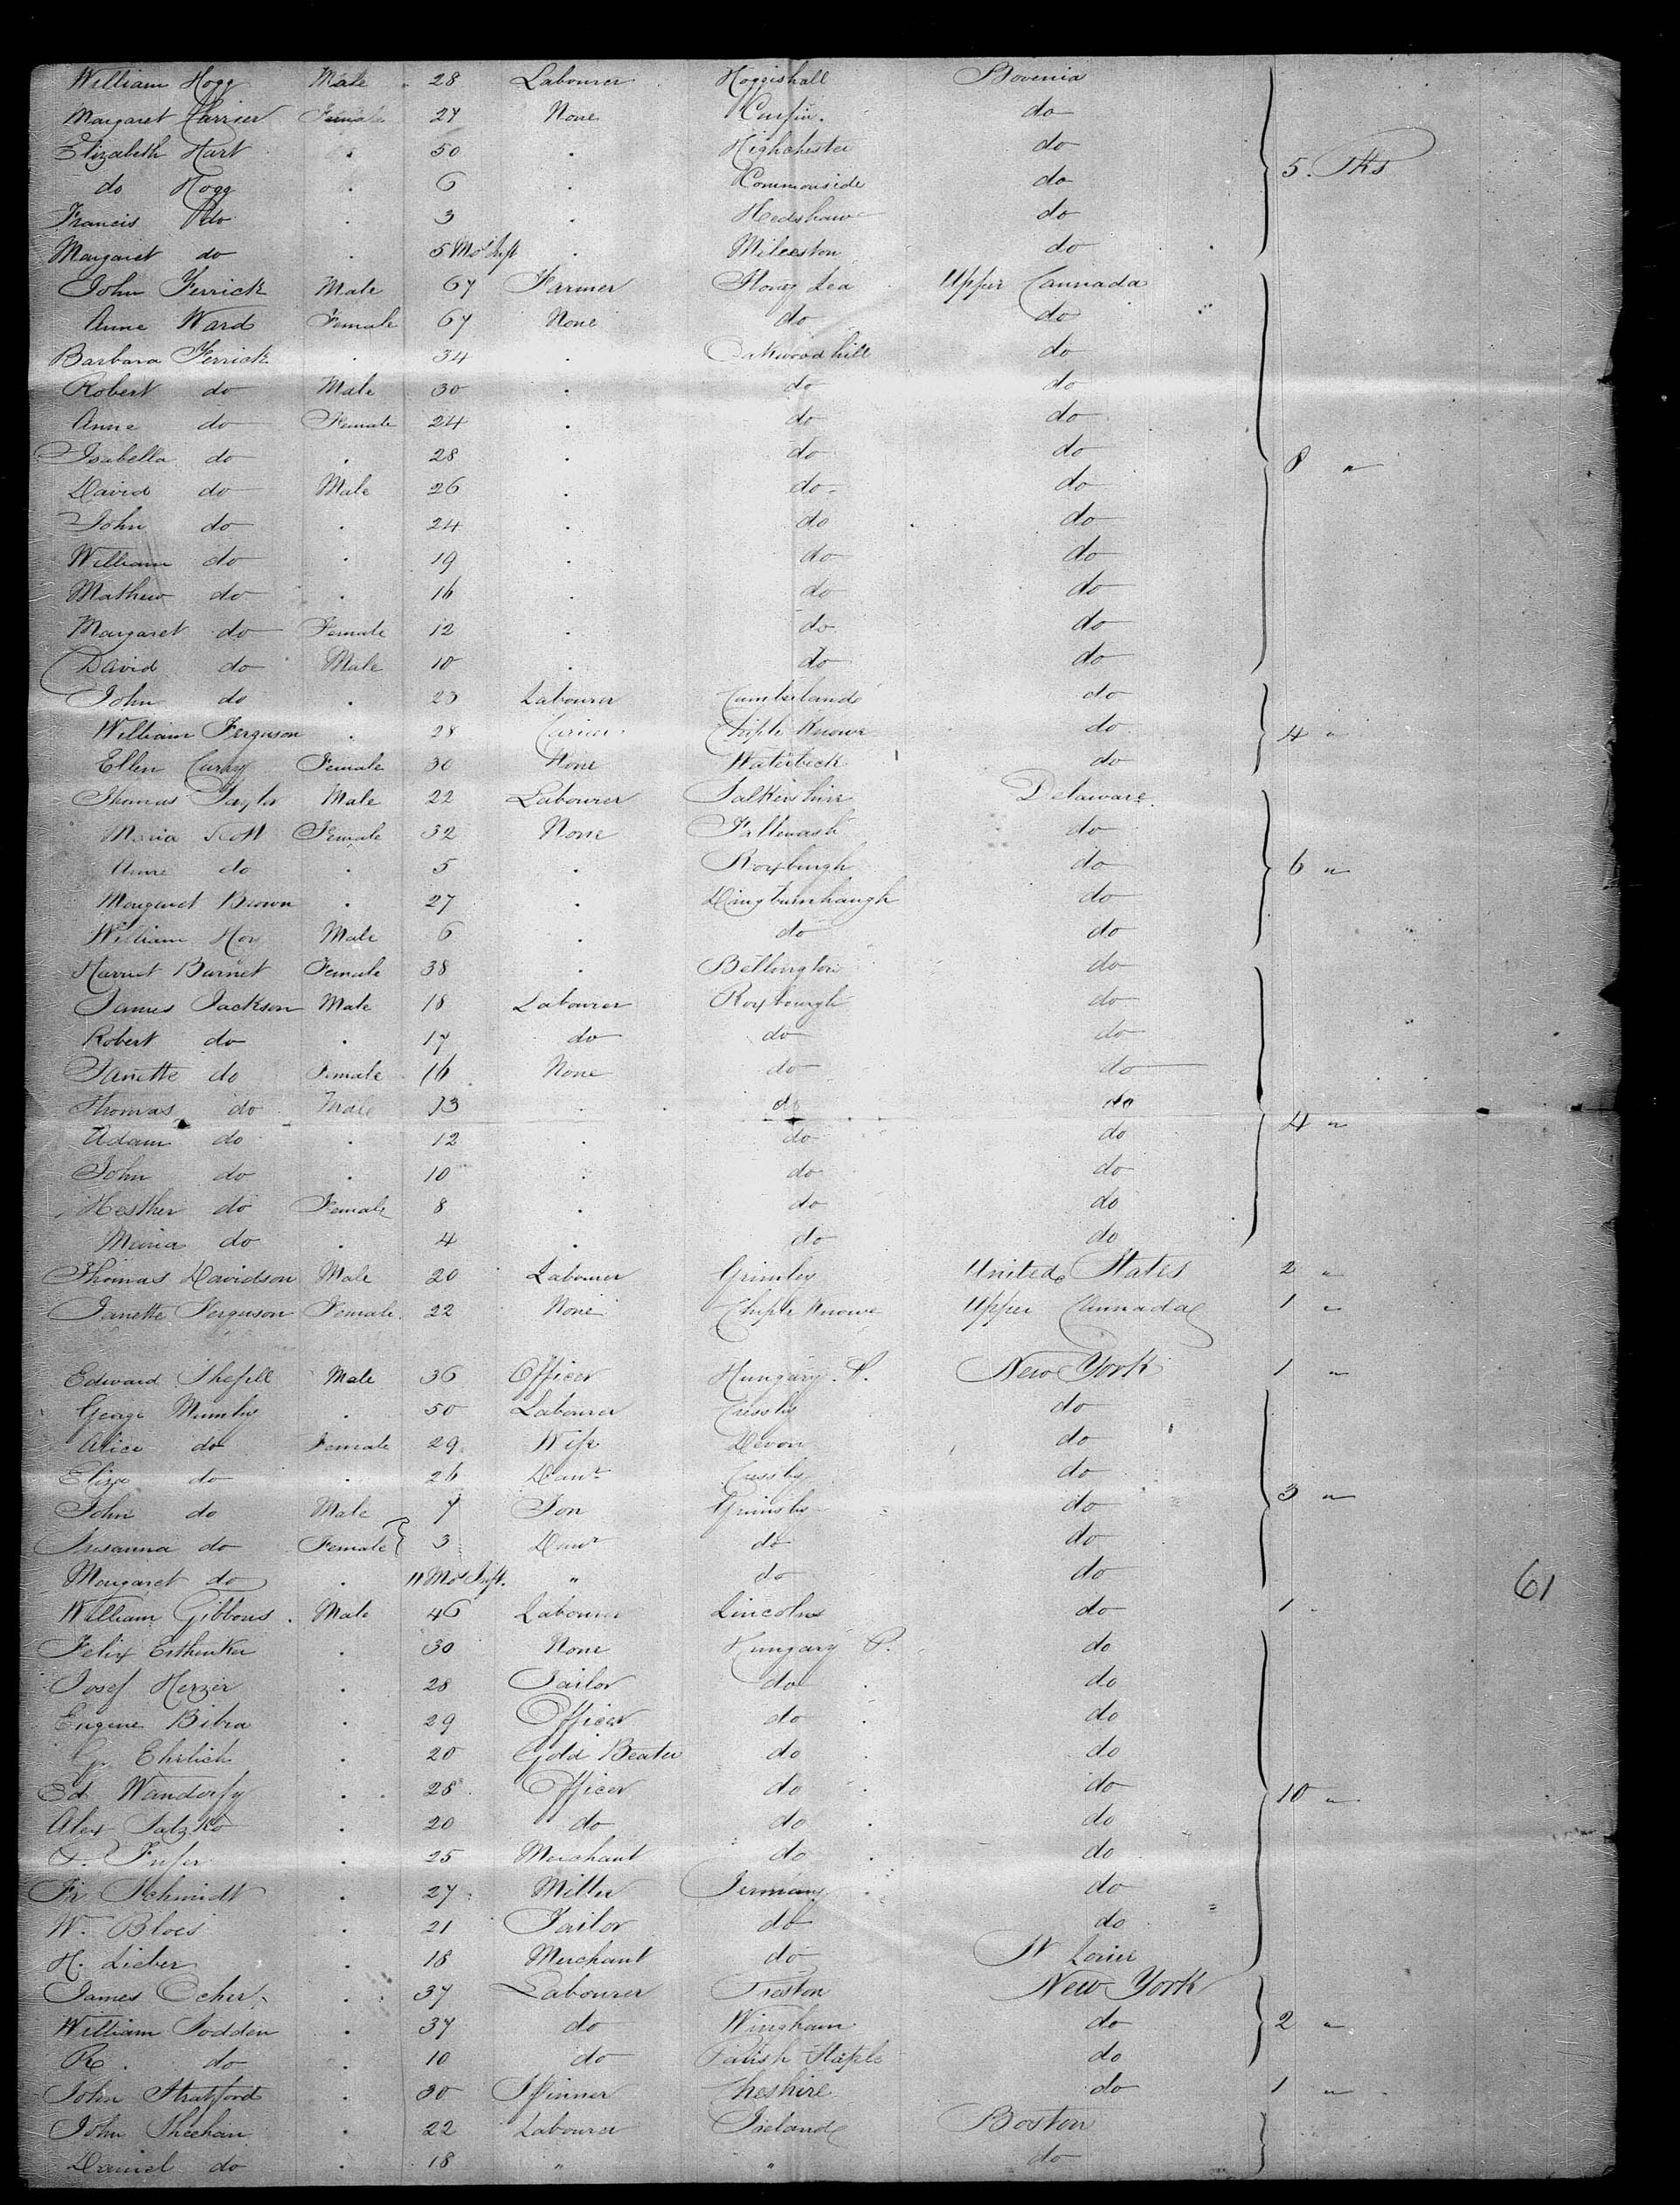 William Hogg Male 28 Labourer Hoggishall Bovenia
Margaret Carrier Female 27 None Curfin. do
Elizabeth Hart . 50 . Highchester do
do Hogg . 6 . Commonside do 5. Pks
Francis do . 3 . Hedshaw do
Margaret do . 5 Mos Inft . Milceston do
John Ferrick Male 67 Farmer Lea Upper Cannada
Anne Ward Female 67 None do do
Barbara Ferrick . 34 . Oakwoodhill do
Robert do Male 30 . do do
Anne do Female 24 . do do
Isabella do . 28 . do do 8 "
David do Male 26 . do do
John do . 24 . do do
William do . 19 . do do
Mathew do . 16 . do do
Margaret do Female 12 . do do
David do Male 10 . do do
John do . 23 Labourer Cumberland do
William Ferguson . 28 Knowe do 4 "
Ellen Female 30 None Waterbeck do
Thomas Taylor Male 22 Labourer Delaware.
Maria Scott Female 32 None do
Anne do . 5 . Roxburgh do 6 "
Margaret Brown . 27 . Ringburnhaugh do
William Male 6 . do do
Harriet Burnet Female 38 . Bellington do
James Jackson Male 18 Labourer Roxbourgh do
Robert do . 17 do do do
Janette do Female 16 None do do
Thomas do Male 13 . do do
Adam do . 12 . do do 4 "
John do . 10 . do do
Hesther do Female 8 . do do
Maria do . 4 . do do
Thomas Davidson Male 20 Labourer Grimley United States 2 "
Janette Ferguson Female 22 None Knowe Upper Cannada 1 "
Edward Male 36 Officer Hungary. P. New York 1 "
George Mumby . 50 Labourer Cressby do
Alice do Female 29 Wife Devon do
Eliza do . 26 Daur Cressby do
John do Male 7 Son Grimsby do 3 "
Susanna do Female 3 Daur do do
Margaret do . 11 Mos Inft. " do do
61
William Gibbons. Male 46 Labourer Lincoln do 1 "
Felix . 30 None Hungary P. do
Josef Herzer . 28 Tailor do do
Eugene Bibra . 29 Officer do do
G. Ehrlich . 20 Gold Beater do do
Ed . 28 Officer do do 10 "
Alex . 20 do do do
. 25 Merchant do do
Fr Schmidt . 27 Miller Germany do
W. Bloes . 21 Tailor do do
H. Lieber . 18 Merchant do St
James . 37 Labourer New York
William Sodden . 37 do Wingham do 2 "
R. do . 10 do Staple do
John Stratford . 30 Spinner Cheshire do 1 "
John Sheehan . 22 Labourer Ireland Boston
Daniel do . 18 " " do